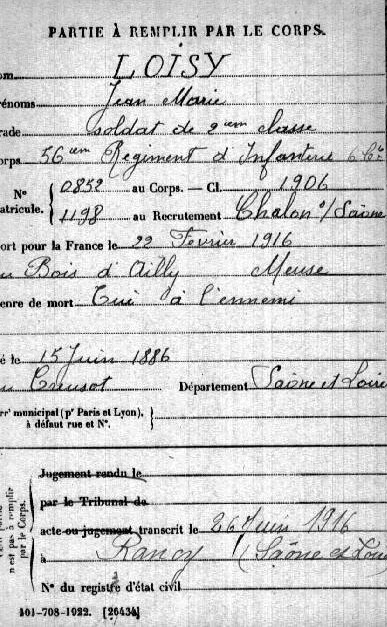 PARTIE À REMPLIR PAR LE CORPS.
om LOISY
rénoms Jean Marie
rade soldat de 2eme classe
orps 56em Régiment d'Infanterie 6 Cie
N° 0852 au Corps. — Cl. 1906
atricule. 1198 au Recrutement Chalon s/ Saône
ort pour la France le 22 Fevrier 1916
au Bois d'Ailly Meuse
enre de mort Tué à l'ennemi
é le 15 Juin 1886
au Creusot Département Saône et Loire
rrt municipal (pr Paris et Lyon),
à défaut rue et N°.
Jugement rendu le
par le Tribunal de
acte ou jugement transcrit le 26 Juin 1916
à Rancy (Saône et Loire
N° du registre d'état civil
n'est pas à remplir
par le Corps.
101-708-1922. [26434]